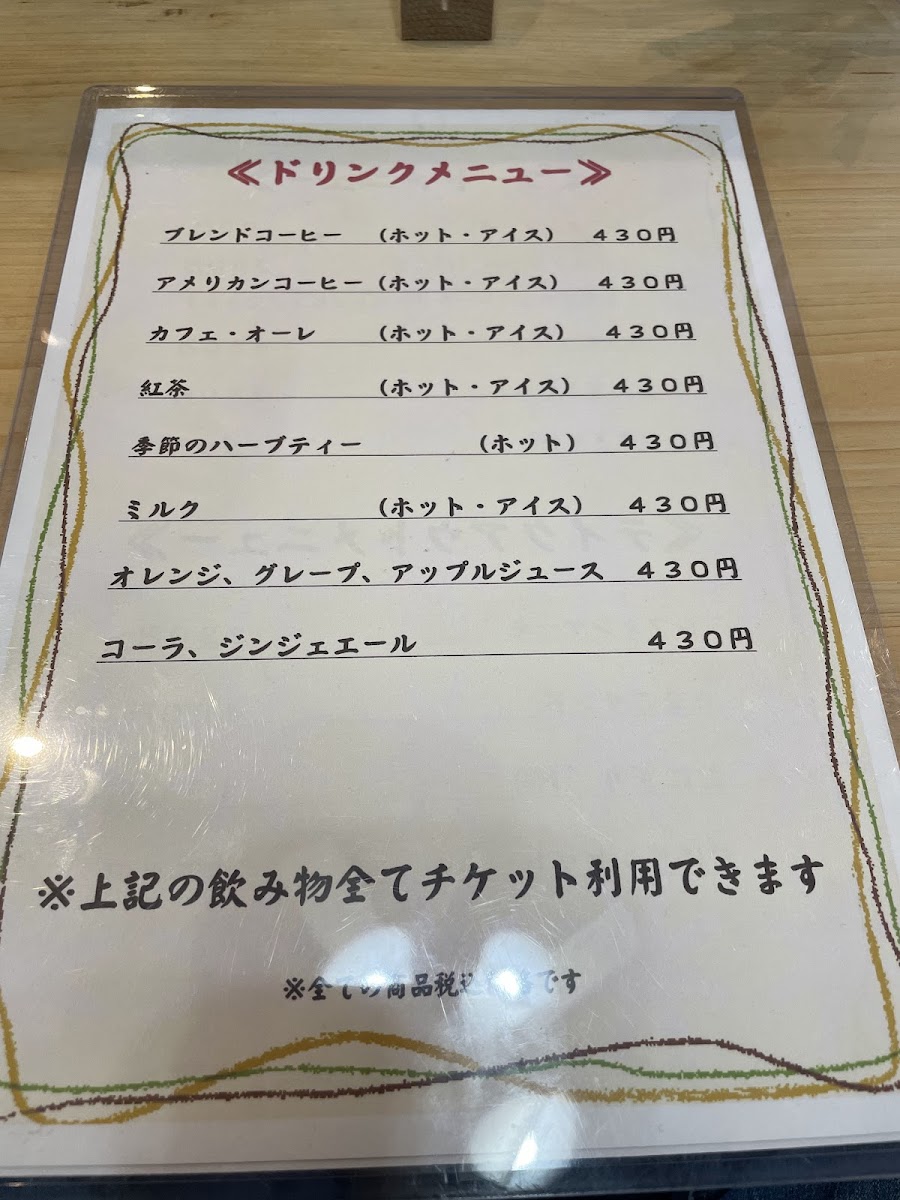 ≪ドリンクメニュー≫
ブレンドコーヒー （ホット・アイス） ４３０円
アメリカンコーヒー（ホット・アイス） ４３０円
カフェ・オーレ （ホット・アイス） ４３０円
紅茶 （ホット・アイス） ４３０円
季節のハーブティー （ホット） ４３０円
ミルク （ホット・アイス） ４３０円
オレンジ、グレープ、アップルジュース ４３０円
コーラ、ジンジェエール ４３０円
※上記の飲み物全てチケット利用できます
※全ての商品税込価格です